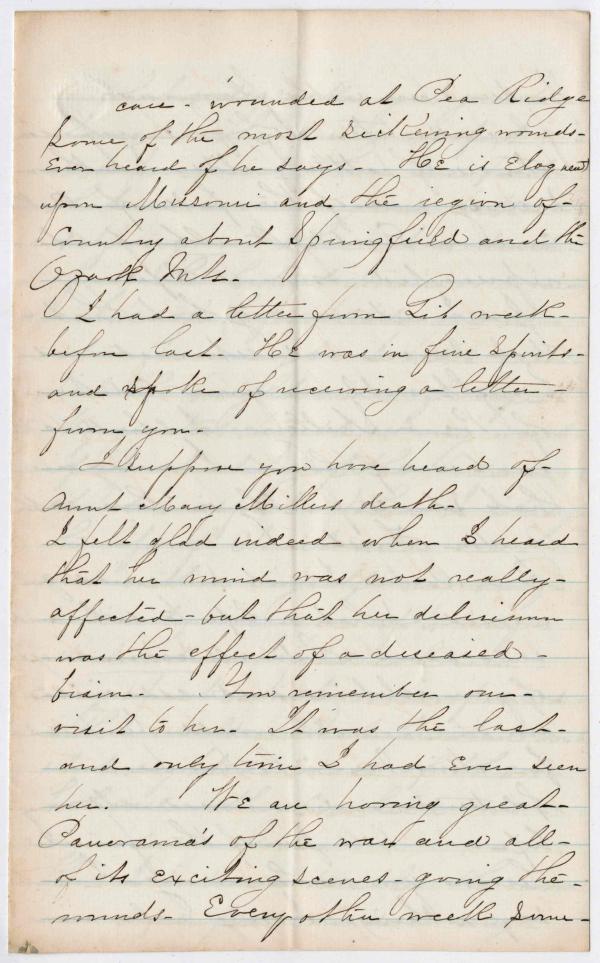 care - wounded at Pea Ridge
some of the most sickening wounds -
Ever heard of he says - He is Eloquent
upon Missouri and the region of -
Country about Springfield and the
Ozark Mts.
I had a letter from Gib week -
before last. He was in fine spirits -
and spoke of receiving a letter -
from you -
I suppose you have heard of -
Aunt Mary Millers death -
I felt glad indeed when I heard
that her mind was not really -
affected - but that her delirium
was the effect of a diseased -
brain - You remember our -
visit to her - It was the last -
and only time I had Ever seen
her. We are having great -
Panorama's of the war and all -
of its exciting scenes - going the -
rounds - Every other week some -